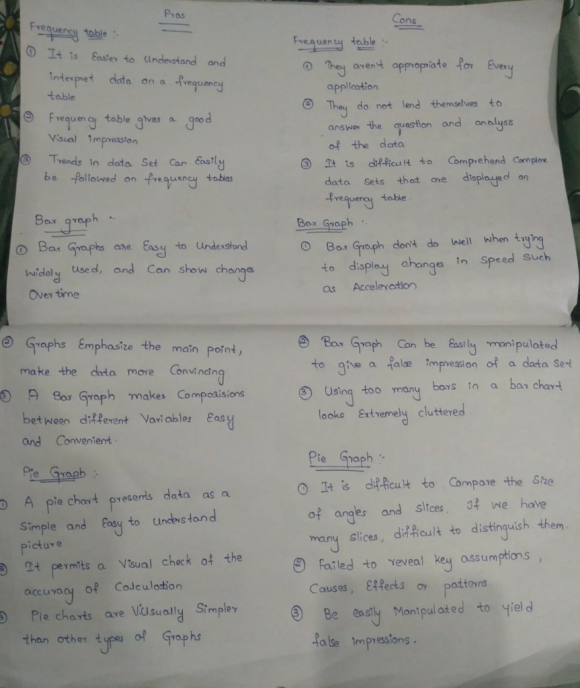 Pros
Frequency table :-
① It is Easier to Understand and
interpret data on a frequency
table
② Frequency table gives a good
Visual impression
③ Trends in data Set Can Easily
be followed on frequency tables
Bar graph -
① Bar Graphs are Easy to Understand
widely Used, and Can show changes
Over time
② Graphs Emphasize the main point,
make the data more Convincing
③ A Bar Graph makes Comparisions
between different Variables Easy
and Convenient.
Pie Graph :-
① A pie chart presents data as a
Simple and Easy to Understand
picture
② It permits a Visual check of the
accuracy of Calculation
③ Pie charts are Visually Simpler
than other types of Graphs
Cons
Frequency table :-
① They aren't appropriate for Every
application
② They do not lend themselves to
answer the question and analysis
of the data
③ It is difficult to Comprehend Complex
data Sets that are displayed on
frequency table
Bar Graph .
① Bar Graph don't do Well When trying
to display changes in Speed Such
as Acceleration
② Bar Graph Can be Easily manipulated
to give a false impression of a data Set
③ Using too many bars in a bar chart
looks Extremely cluttered
Pie Graph :-
① It is difficult to Compare the Size
of angles and slices. If we have
many Slices, difficult to distinguish them.
② Failed to reveal key assumptions,
Causes, Effects or patterns
③ Be easily Manipulated to yield
false impressions.